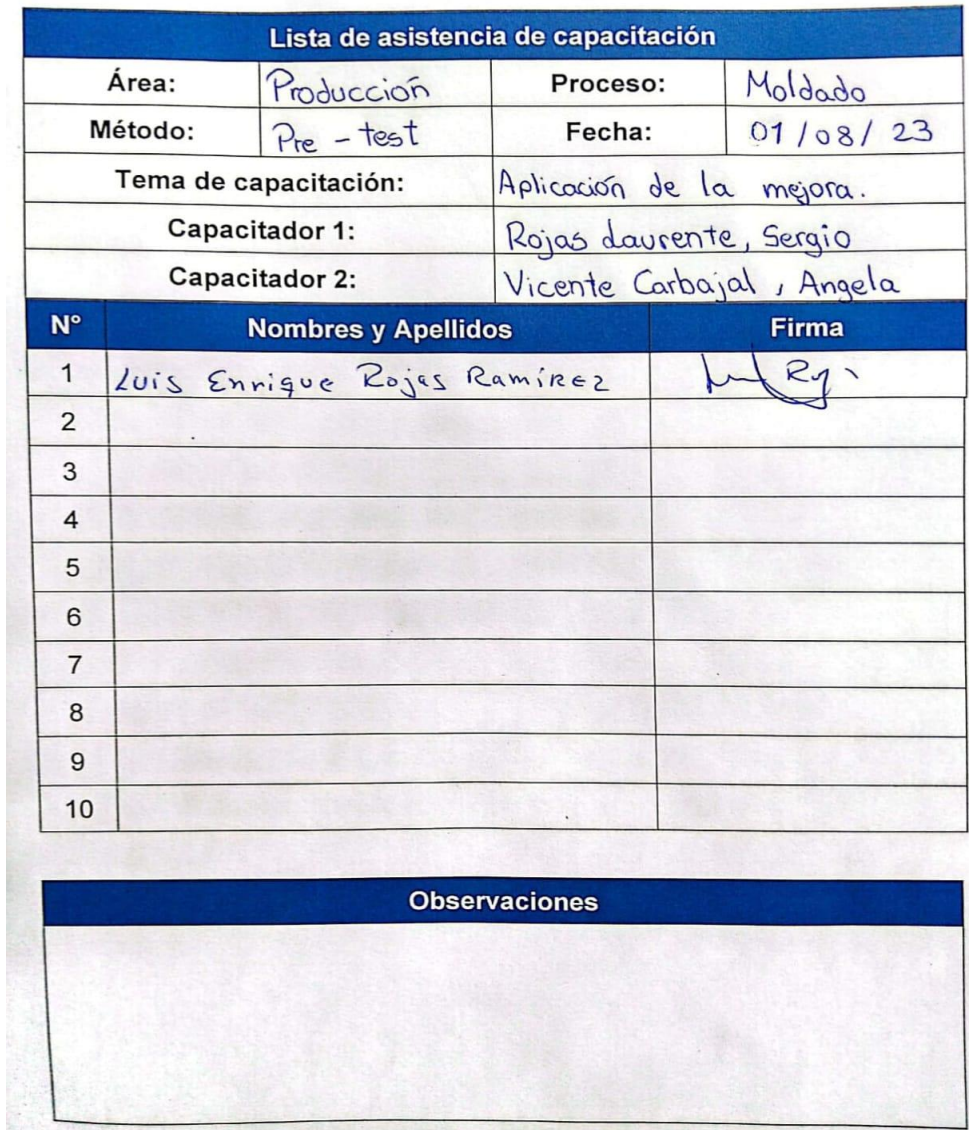 Lista de asistencia de capacitación
Área: Producción Proceso: Moldado
Método: Pre - test Fecha: 01/08/23
Tema de capacitación: Aplicación de la mejora.
Capacitador 1: Rojas Laurente, Sergio
Capacitador 2: Vicente Carbajal, Angela
N° Nombres y Apellidos Firma
1 Luis Enrique Rojas Ramírez
2
3
4
5
6
7
8
9
10
Observaciones